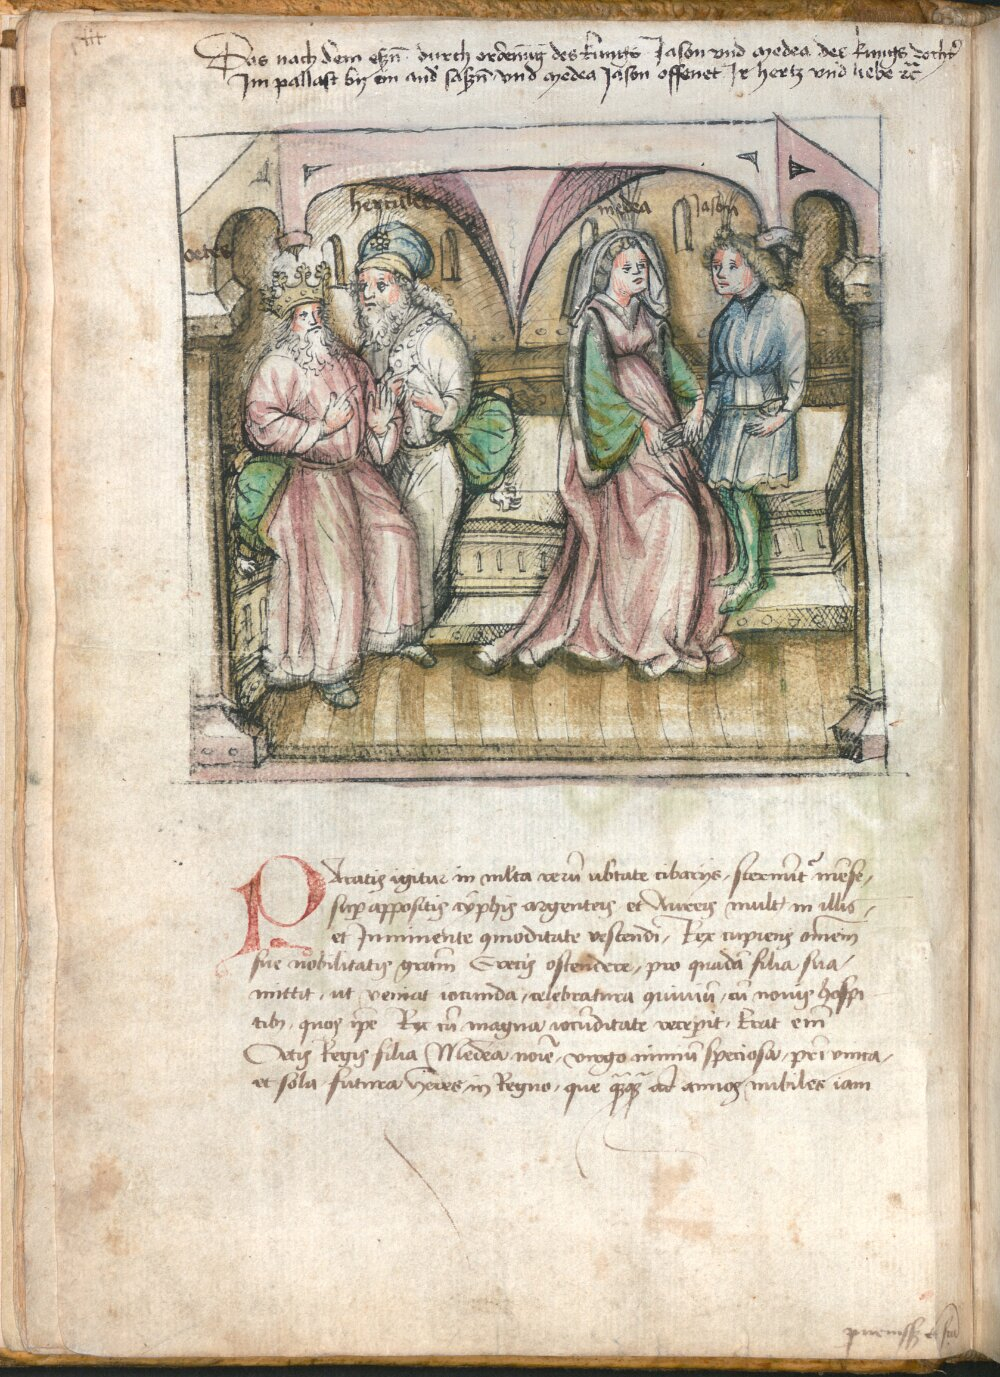 Das nach dem eßen durch ordenung des kungs Jason vnd medea des kungs dochter
Im pallast by ein and saßen vnd medea Jason offenet Ir hertz vnd liebe
hercules
medea
Jason
oetes
Paratis igitur in mlta reru ubtate cibarijs, sternunt mense,
sup appositis cyphis argenteis et Aureis mult in illis,
et Imminente qmoditate vescendi, Rex cupiens omem
sue nobilitatis gram Grecis ostendere, pro quada filia sua
mittit, ut veniat iocunda, celebratura quiuiu, cu nouis hospi
tib, quos ipe Rex cu magna iocuditate recepit, Erat em
Oetis Regis filia Medea noie, virgo nimiu speciosa, pri vnica,
et sola futura heres in Regno, que ad annos nubiles iam